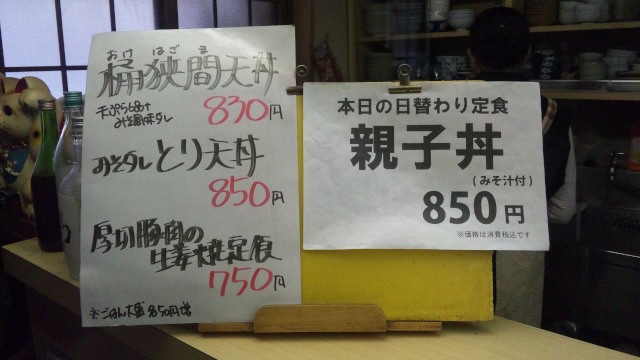 おけはざま
桶狭間天丼
830円
みそ風味ダレ
みそダレとり天丼
850円
厚切豚肉の
生姜焼定食
750円
本日の日替わり定食
親子丼
(みそ汁付)
850円
※価格は消費税込です